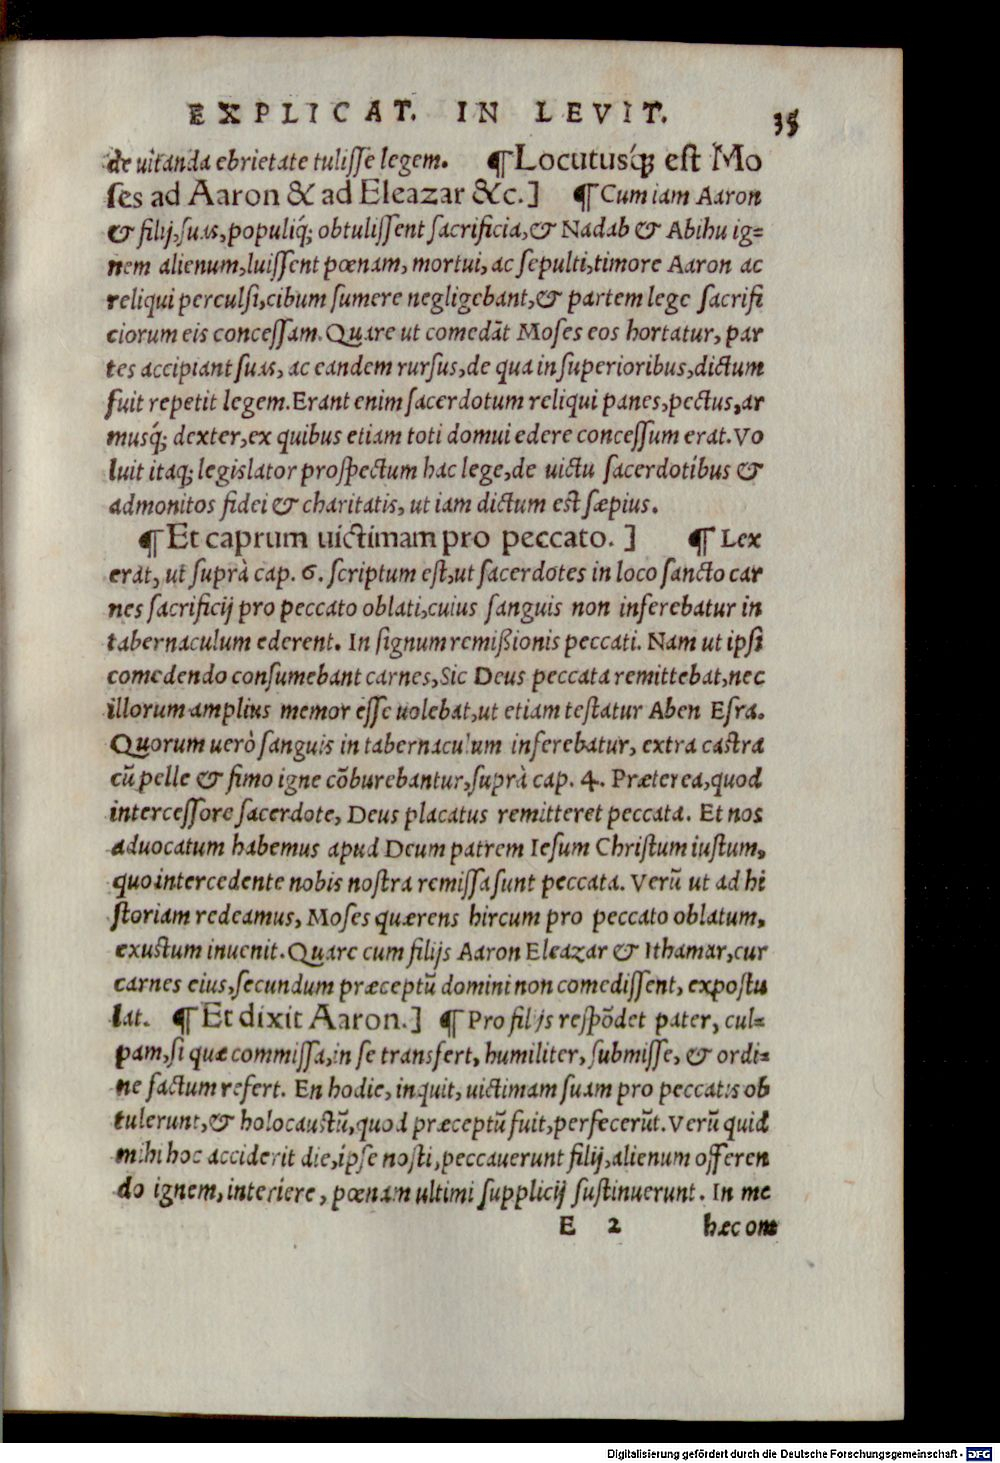 EXPLICAT. IN LEVIT. 35
de uitanda ebrietate tulisse legem. ¶ Locutusq́; est Mo
ses ad Aaron & ad Eleazar &c.] ¶ Cum iam Aaron
& filij, suas, populiq́; obtulissent sacrificia, & Nadab & Abihu ig=
nem alienum, luissent pœnam, mortui, ac sepulti, timore Aaron ac
reliqui perculsi, cibum sumere negligebant, & partem lege sacrifi
ciorum eis concessam. Quare ut comedāt Moses eos hortatur, par
tes accipiant suas, ac eandem rursus, de qua in superioribus, dictum
fuit repetit legem. Erant enim sacerdotum reliqui panes, pectus, ar
musq́; dexter, ex quibus etiam toti domui edere concessum erat. Vo
luit itaq; legislator prospectum hac lege, de uictu sacerdotibus &
admonitos fidei & charitatis, ut iam dictum est sæpius.
¶ Et caprum uictimam pro peccato.] ¶ Lex
erat, ut suprà cap. 6. scriptum est, ut sacerdotes in loco sancto car
nes sacrificij pro peccato oblati, cuius sanguis non inferebatur in
tabernaculum ederent. In signum remißionis peccati. Nam ut ipsi
comedendo consumebant carnes, Sic Deus peccata remittebat, nec
illorum amplius memor esse uolebat, ut etiam testatur Aben Esra.
Quorum uerò sanguis in tabernaculum inferebatur, extra castra
cū pelle & fimo igne cōburebantur, suprà cap. 4. Præterea, quod
intercessore sacerdote, Deus placatus remitteret peccata. Et nos
aduocatum habemus apud Deum patrem Iesum Christum iustum,
quo intercedente nobis nostra remissa sunt peccata. Verū ut ad hi
storiam redeamus, Moses quærens hircum pro peccato oblatum,
exustum inuenit. Quare cum filijs Aaron Eleazar & Ithamar, cur
carnes eius, secundum præceptū domini non comedissent, expostu
lat. ¶ Et dixit Aaron.] ¶ Pro filijs respōdet pater, cul=
pam, si quæ commissa, in se transfert, humiliter, submisse, & ordi=
ne factum refert. En hodie, inquit, uictimam suam pro peccatis ob
tulerunt, & holocaustū, quod præceptū fuit, perfecerūt. Verū quid
mihi hoc acciderit die, ipse nosti, peccauerunt filij, alienum offeren
do ignem, interiere, pœnam ultimi supplicij sustinuerunt. In me
E 2 hæc om
Digitalisierung gefördert durch die Deutsche Forschungsgemeinschaft - DFG